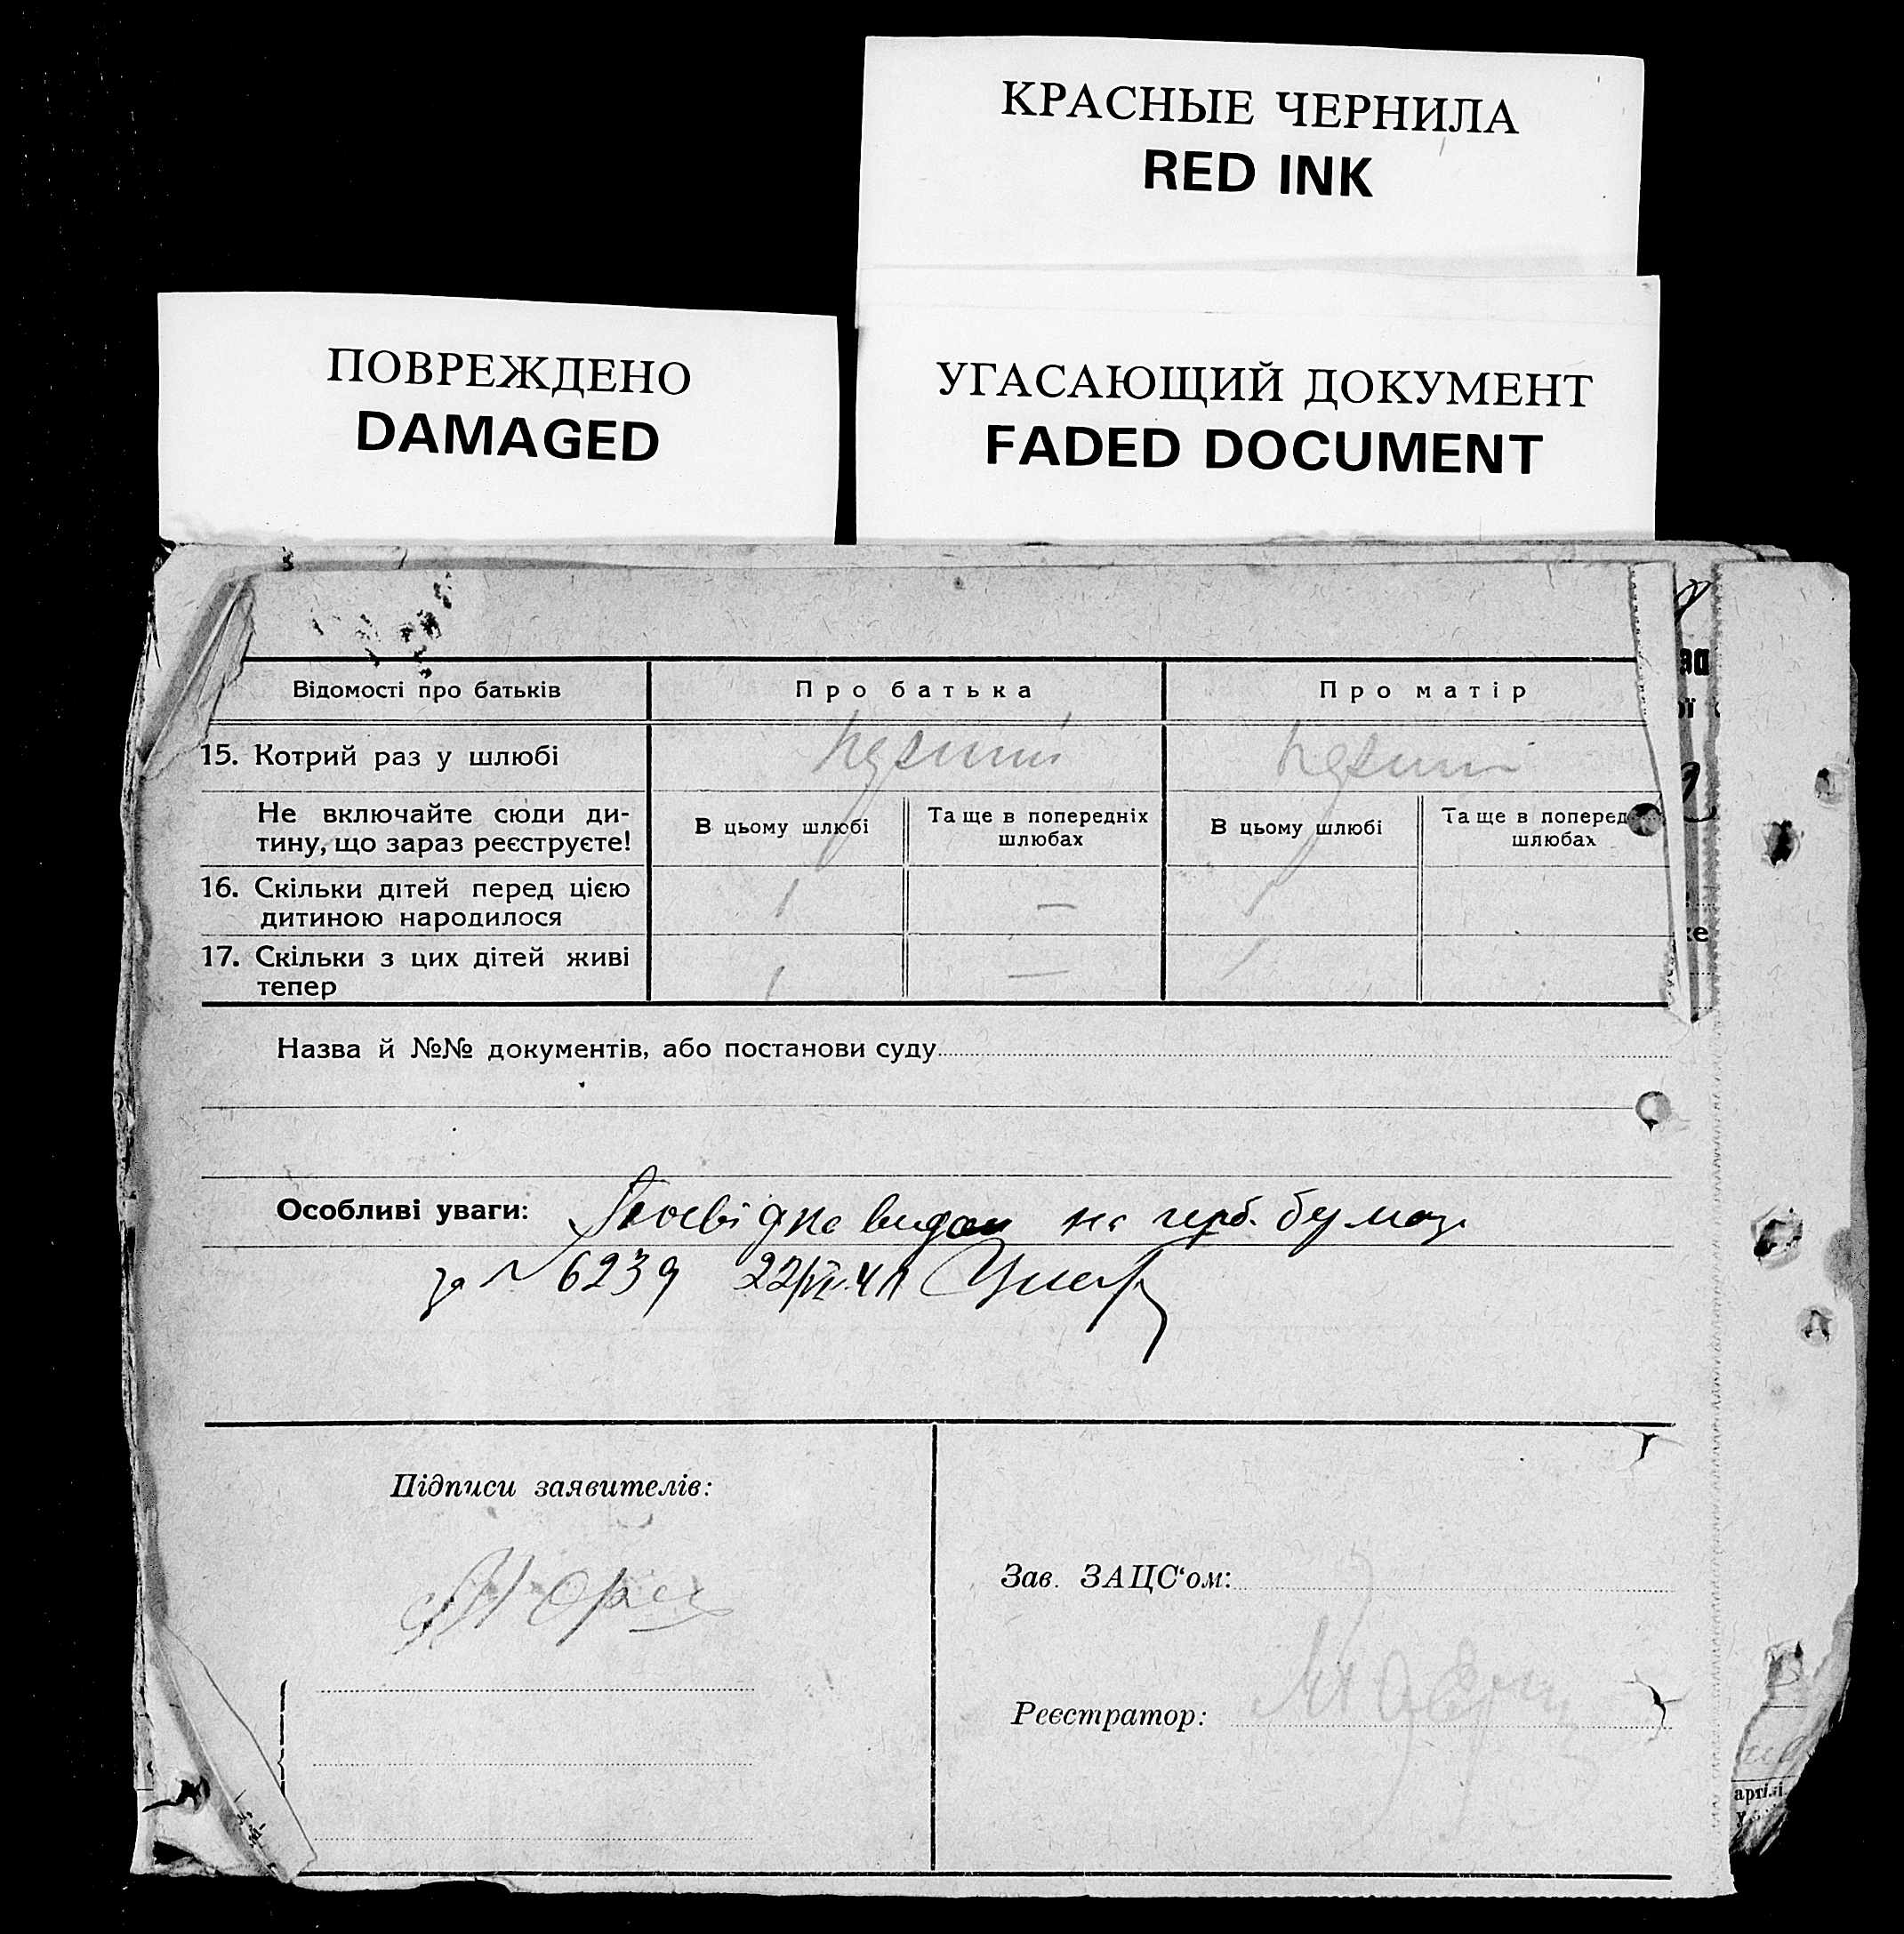 КРАСНЫЕ ЧЕРНИЛА
RED INK
ПОВРЕЖДЕНО
DAMAGED
УГАСАЮЩИЙ ДОКУМЕНТ
FADED DOCUMENT
Відомості про батьків Про батька Про матір
15. Котрий раз у шлюбі
Не включайте сюди ди-
тину, що зараз реєструєте!
В цьому шлюбі
Та ще в попередніх
шлюбах
В цьому шлюбі
Та ще в поперед
шлюбах
16. Скільки дітей перед цією
дитиною народилося
1 — 1
17. Скільки з цих дітей живі
тепер
1 — 1
Назва й №№ документів, або постанови суду
Особливі уваги: на герб. бумазі
за № 6239 22/VII.41
Підписи заявителів:
Зав. ЗАЦС‘ом:
Реєстратор: